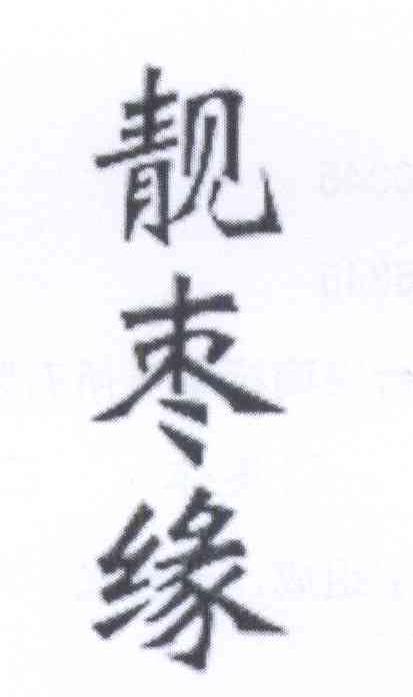 靓枣缘